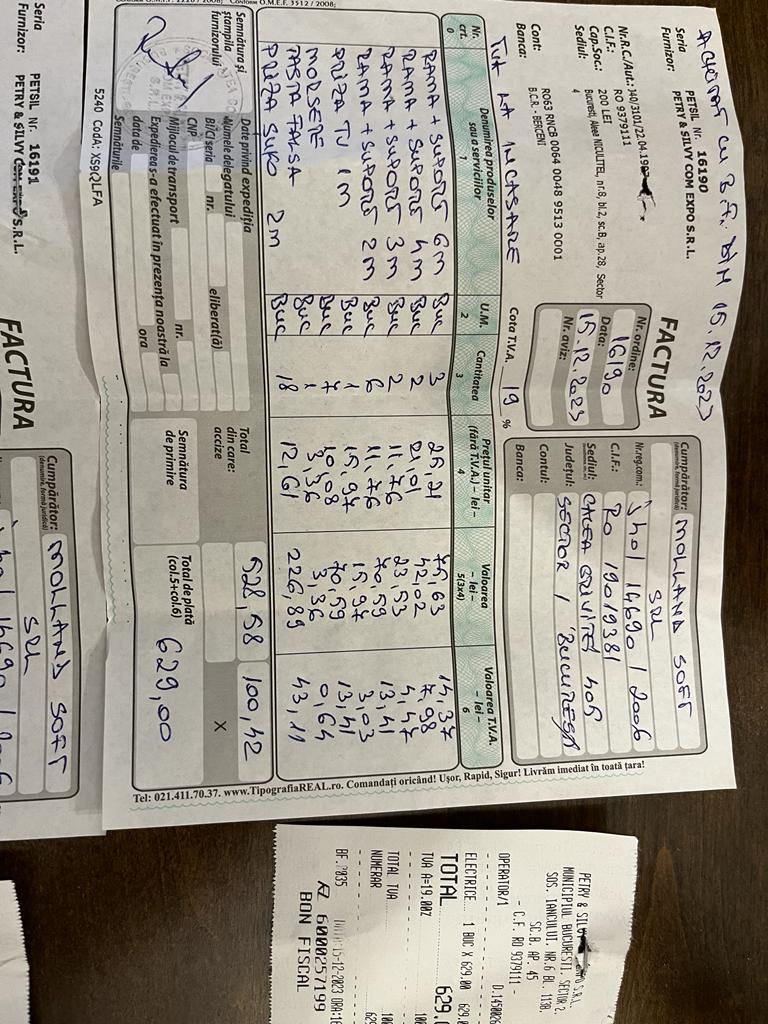 ACHITAT CU B.F. DIN 15.12.2023
Seria PETSIL Nr. 16190
Furnizor: PETRY & SILVY COM EXPO S.R.L.
Nr.R.C./Aut.: J40/3101/22.04.199
C.I.F.: RO 9379111
Cap.Soc.: 200 LEI
Sediul: Bucuresti, Aleea NICULITEL, nr.8, bl.2, sc.B, ap.28, Sector 4
Cont: RO63 RNCB 0064 0048 9513 0001
Banca: B.C.R. - BERCENI
TVA LA INCASARE
FACTURA
Nr. ordine: 16190
Data: 15.12.2023
Nr. aviz:
Cota T.V.A. 19 %
Cumpărător: MOLLAND SOFT
(denumire, formă juridică) SRL
Nr.reg.com.: J40/14690/2006
C.I.F.: RO 19019381
Sediul: CALEA GRIVITEI 405
Județul: SECTOR 1 BUCURESTI
Contul:
Banca:
Nr. crt. Denumirea produselor sau a serviciilor U.M. Cantitatea Prețul unitar (fără T.V.A.) - lei - Valoarea - lei - Valoarea T.V.A. - lei -
0 1 2 3 4 5(3x4) 6
RAMA + SUPORT 6M BUC 3 25,21 75,63 14,37
RAMA + SUPORT 4M BUC 2 21,01 42,02 7,98
RAMA + SUPORT 3M BUC 2 11,76 23,53 4,47
RAMA + SUPORT 2M BUC 6 11,76 70,59 13,41
PRIZA TV 1M BUC 1 15,97 15,97 3,03
MORSETE BUC 7 10,08 70,59 13,41
TASTA FALSA BUC 1 3,36 3,36 0,64
PRIZA SUKO 2M BUC 18 12,61 226,89 43,11
Semnătura și ștampila furnizorului
Date privind expediția
Numele delegatului
BI/CI seria nr. eliberat(ă)
CNP
Mijlocul de transport nr.
Expedierea s-a efectuat în prezența noastră la
data de ora
Semnăturile
Total din care: accize
528,58 100,42
X
Semnătura de primire
Total de plată (col.5+col.6)
629,00
5240 CodA: XS9QLFA
Tel: 021.411.70.37. www.TipografiaREAL.ro. Comandați oricând! Ușor, Rapid, Sigur! Livrăm imediat în toată țara!
Seria PETSIL Nr. 16191
Furnizor: PETRY & SILVY COM EXPO S.R.L.
FACTURA
Cumpărător: MOLLAND SOFT
(denumire, formă juridică) SRL
PETRY & SILV EXPO S.R.L.
MUNICIPIUL BUCURESTI, SECTOR 2,
SOS. IANCULUI, NR.6 BL. 113B,
SC.B, AP. 45
- C.F. RO 9379111 -
OPERATOR/1
ELECTRICE 1 BUC X 629.00 629.0
TVA A=19.00%
TOTAL 629.0
TOTAL TVA
NUMERAR
BF. 15-12-2023
6000257199
BON FISCAL